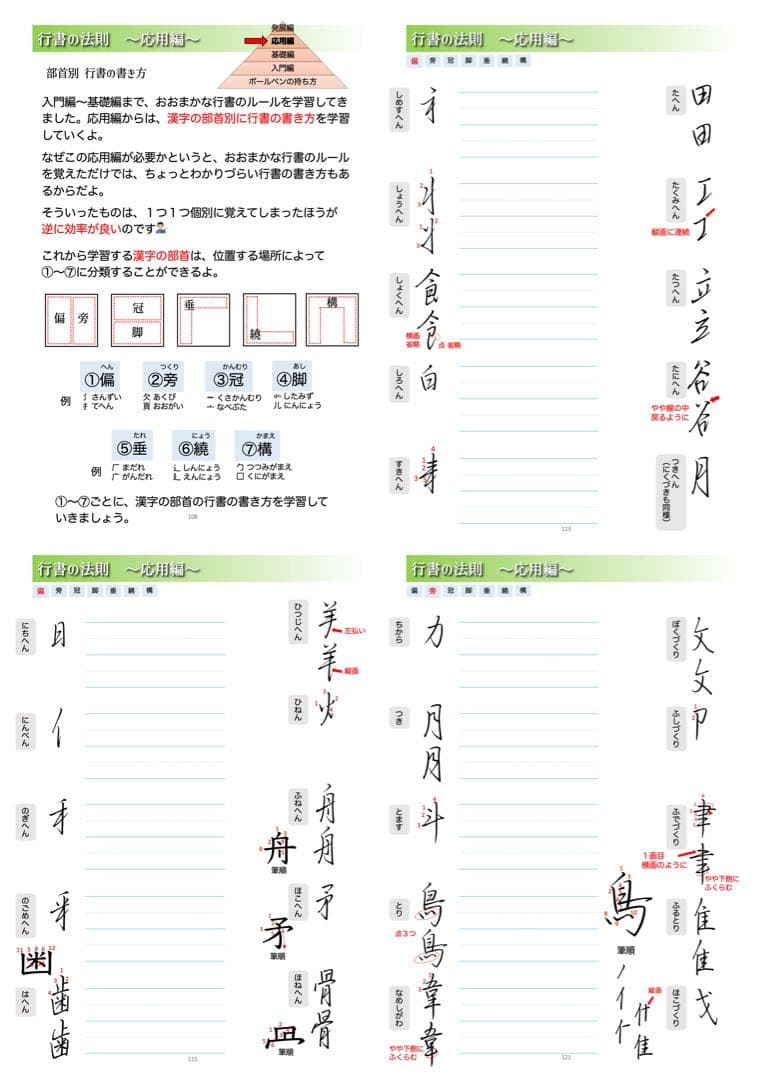 行書の法則　～応用編～
発展編
応用編
基礎編
入門編
ボールペンの持ち方
部首別 行書の書き方
入門編～基礎編まで、おおまかな行書のルールを学習してき
ました。応用編からは、漢字の部首別に行書の書き方を学習
していくよ。
なぜこの応用編が必要かというと、おおまかな行書のルール
を覚えただけでは、ちょっとわかりづらい行書の書き方もあ
るからだよ。
そういったものは、１つ１つ個別に覚えてしまったほうが
逆に効率が良いのです🙇🏻‍♂️
これから学習する漢字の部首は、位置する場所によって
①～⑦に分類することができるよ。
偏 旁
冠
脚
垂
繞
構
へん つくり かんむり あし
①偏 ②旁 ③冠 ④脚
例
氵 さんずい 欠 あくび 艹 くさかんむり 氺 したみず
扌 てへん 頁 おおがい 亠 なべぶた 儿 にんにょう
たれ にょう かまえ
⑤垂 ⑥繞 ⑦構
例
广 まだれ 辶 しんにょう 勹 つつみがまえ
厂 がんだれ 廴 えんにょう 囗 くにがまえ
①～⑦ごとに、漢字の部首の行書の書き方を学習して
いきましょう。
108
行書の法則　～応用編～
偏 旁 冠 脚 垂 繞 構
しめすへん
礻
しょうへん
丬
丬
1
2
3
1
2
3
しょくへん
飠
飠
横画
省略
点 省略
しろへん
白
すきへん
耒
1
2
3
4
5
たへん
田
田
たくみへん
工
工
縦画に連続
たつへん
立
立
たにへん
谷
谷
やや線の中
戻るように
つきへん
（にくづきも同様）
月
113
行書の法則　～応用編～
偏 旁 冠 脚 垂 繞 構
にちへん
日
にんべん
亻
のぎへん
禾
のごめへん
釆
はへん
歯
歯
11 5 8 6 12
1
2
3
4
ひつじへん
羊
左払い
羊
縦画
ひへん
火
1
2
3
4
ふねへん
舟
舟
舟
筆順
ほこへん
矛
矛
筆順
ほねへん
骨
骨
筆順
115
行書の法則　～応用編～
偏 旁 冠 脚 垂 繞 構
ちから
力
つき
月
月
とます
斗
1
2
3
4
とり
鳥
鳥
点３つ
なめしがわ
韋
韋
やや下側に
ふくらむ
ぼくづくり
攵
攵
ふしづくり
卩
1
2
ふでづくり
聿
聿
１画目
横画のように
やや下側に
ふくらむ
鳥
筆順
ふるとり
隹
隹
縦画
隹
ほこづくり
戈
121